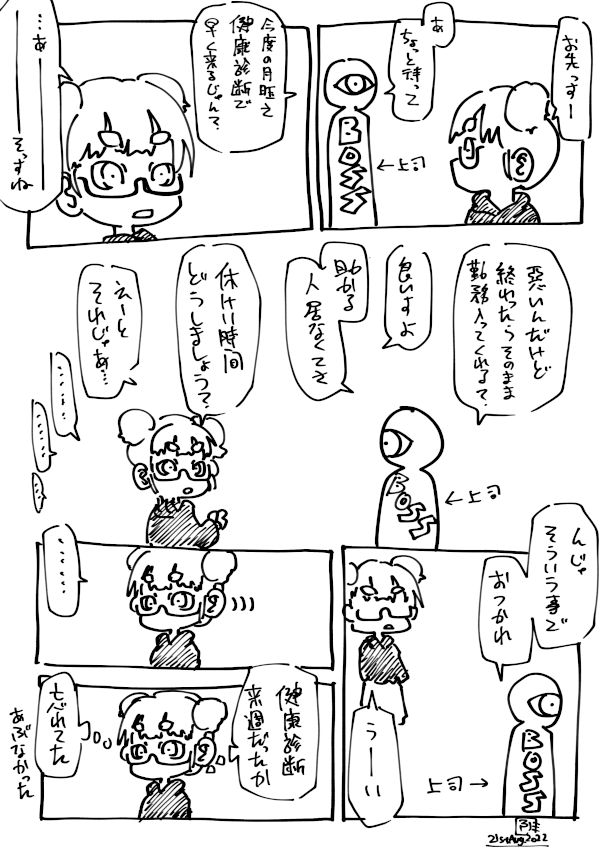 お先っすー
あ
ちょっと待って
BOSS
←上司
今度の月曜さ
健康診断で
早く来るじゃん?
…あーーー
…そっすね
悪いんだけど
終わったらそのまま
勤務入ってくれる?
良いすよ
助かる
人居なくてさ
休けい時間
どうしましょう?
えーと
それじゃあ…
……
……
……
BOSS
←上司
んじゃ
そういう事で
おつかれ
うーい
BOSS
上司→
……
健康診断
来週だったか
忘れてた
あぶなかった
21stAug.2022